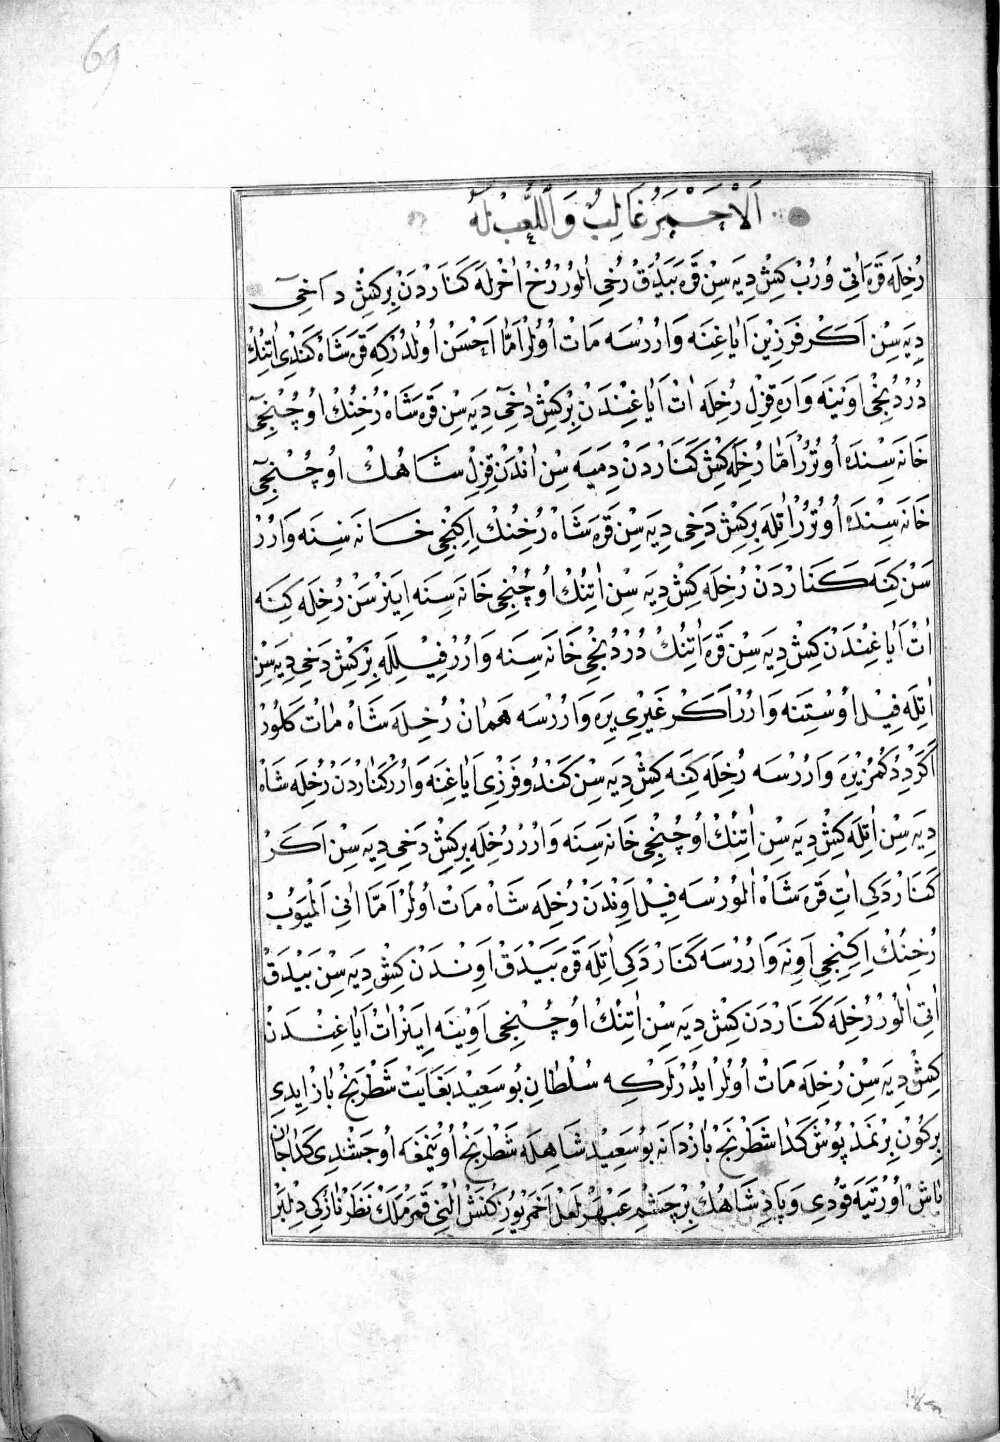 69
اَلْاَحْمَرُ غَالِبٌ وَاللَّعْبُ لَهُ
رُخِلَه قَرَه اٰتِی وُرُبْ كِشْ دِیَه سِنْ قَرَه بَیْدَقْ رُخِی اٰلُورْ رُخْ اٰخَرْلَه كَنَارْدَنْ بِرْ كِشْ دَاخِی
دِیَه سِنْ اَكَرْ فَرْزِینْ اَیَاغِنَه وَارُرْسَه مَاتْ اُولُرْ اَمَّا اَحْسَنْ اُولْدُرْكِه قَرَه شَاهْ كَنْدِی اٰتِنُكْ
دُرْدُنْجِی اَوِینَه وَارَه قِزِلْ رُخِلَه اٰتْ اَیَاغِنْدَنْ بِرْ كِشْ دَخِی دِیَه سِنْ قَرَه شَاهْ رُخِنُكْ اُوچُنْجِی
خَانَه سِنْدَه اُوتُرُرْ اَمَّا رُخِلَه كِشْ كَنَارْدَنْ دِمَیَه سِنْ اٰنْدَنْ قِزِلْ شَاهُكْ اُوچُنْجِی
خَانَه سِنْدَه اُوتُرُرْ اٰتِلَه بِرْ كِشْ دَخِی دِیَه سِنْ قَرَه شَاهْ رُخِنُكْ اِكِنْجِی خَانَه سِنَه وَارُرْ
سَنْ كِنَه كَنَارْدَنْ رُخِلَه كِشْ دِیَه سِنْ اٰتِنُكْ اُوچُنْجِی خَانَه سِنَه اِینَرْ سَنْ رُخِلَه كِنَه
اٰتْ اَیَاغِنْدَنْ كِشْ دِیَه سِنْ قَرَه اٰتِنُكْ دُرْدُنْجِی خَانَه سِنَه وَارُرْ فِیلِلَه بِرْ كِشْ دَخِی دِیَه سِنْ
اٰتِلَه فِیلْ اُوسْتِنَه وَارُرْ اَكَرْ غَیْرِی یِرَه وَارُرْسَه هَمَانْ رُخِلَه شَاهْ مَاتْ كَلُورْ
اَكَرْ دِدُكُمْزْ یِرَه وَارُرْسَه رُخِلَه كِنَه كِشْ دِیَه سِنْ كَنْدُو فَرْزِی اَیَاغِنَه وَارُرْ كَنَارْدَنْ رُخِلَه شَاهْ
دِیَه سِنْ اٰتِلَه كِشْ دِیَه سِنْ اٰتِنُكْ اُوچُنْجِی خَانَه سِنَه وَارُرْ رُخِلَه بِرْ كِشْ دَخِی دِیَه سِنْ اَكَرْ
كَنَارْدَكِی اٰتِ قَرَه شَاهْ اٰلُورْسَه فِیلْ اَوِنْدَنْ رُخِلَه شَاهْ مَاتْ اُولُرْ اَمَّا اٰنِی اَلْمَیُوبْ
رُخِنُكْ اِكِنْجِی اَوِنَه وَارُرْسَه كَنَارْدَكِی اٰتِلَه قَرَه بَیْدَقْ اَوِنْدَنْ كِشْ دِیَه سِنْ بَیْدَقْ
اٰتِی اٰلُورْ رُخِلَه كَنَارْدَنْ كِشْ دِیَه سِنْ اٰتِنُكْ اُوچُنْجِی اَوِینَه اِینَرْ اٰتْ اَیَاغِنْدَنْ
كِشْ دِیَه سِنْ رُخِلَه مَاتْ اُولُرْ ایدُرْلَرْكِه سُلْطَانْ بُو سَعِیدْ بَغَایَتْ شَطْرَنْجْ بَازْ اِیدِی
بِرْ كُونْ بِرْ نَمَدْ پُوشْ كَدَا شَطْرَنْجْ بَازْدَانَه بُو سَعِیدْ شَاهِلَه شَطْرَنْجْ اُوینَمَغَه اُوجَشْدِی كَدَا جَانْ
بَاشْ اُورْتَیَه قُودِی وَپَادِشَاهُكْ بِرْ چَشْمِ عَبْهَرْ لَعْلْ اَحْمَرْ یُوزِ كُنَشْ اٰلْنِی قَمَرْ مَلَكْ نَظَرْ نَازُكِی دِلْبَرْ